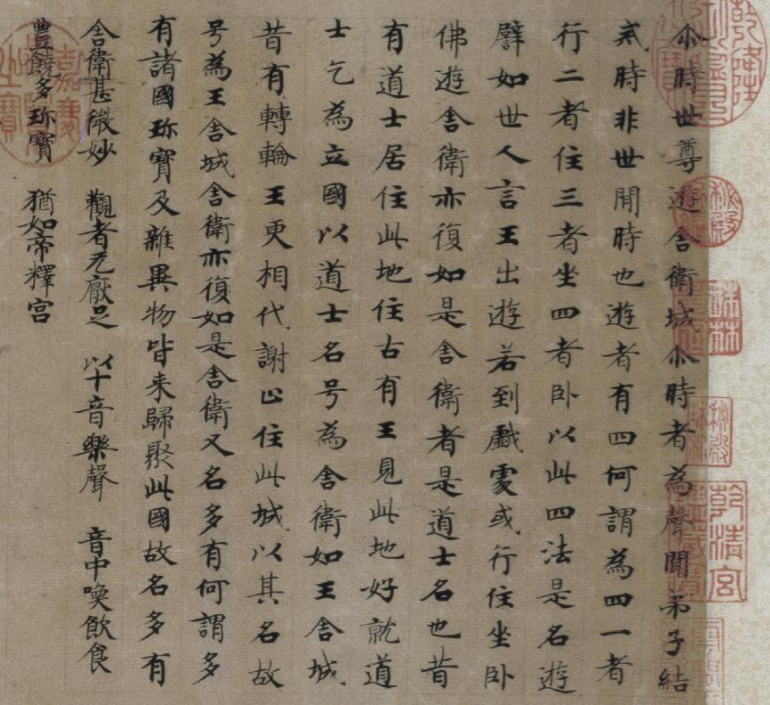 尒時世尊遊舍衛城尒時者為聲聞弟子結
戒時非世間時也遊者有四何謂為四一者
行二者住三者坐四者卧以此四法是名遊
譬如世人言王出遊若到戲處或行住坐卧
佛遊舍衛亦復如是舍衛者是道士名也昔
有道士居住此地住古有王見此地好就道
士乞為立國以道士名号為舍衛如王舍城
昔有轉輪王更相代謝止住此城以其名故
号為王舍城舍衛亦復如是舍衛又名多有何謂多
有諸國珎寶及雜異物皆来歸聚此國故名多有
舍衛甚微妙 觀者无厰足 以十音樂聲 音中喚飲食
豊饒多珎寶 猶如帝釋宫
乾清宮